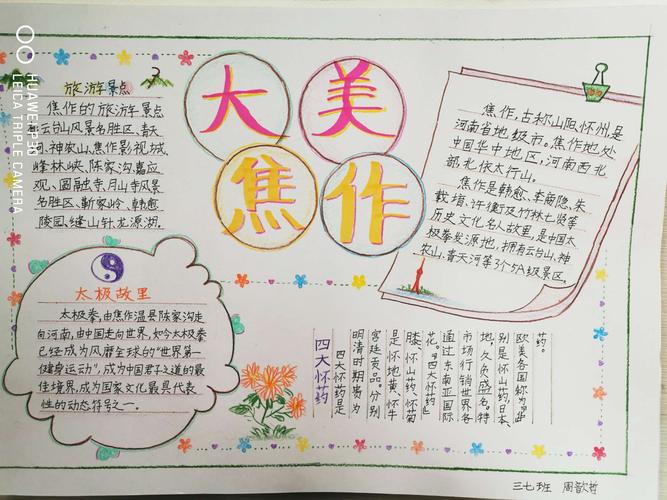 HUAWEI P30
LEICA TRIPLE CAMERA
大美
焦作
旅游景点
焦作的旅游景点
有云台山风景名胜区、青天
河、神农山、焦作影视城、
峰林峡、陈家沟、嘉应
观、圆融寺、月山寺风景
名胜区、靳家岭、韩愈
陵园、缝山针、龙源湖.
焦作,古称山阳、怀州,是
河南省地级市。焦作地处
中国华中地区,河南西北
部,北依太行山。
焦作是韩愈、李商隐、朱
载堉、许衡及竹林七贤等
历史文化名人故里,是中国太
极拳发源地,拥有云台山、神
农山、青天河等3个5A级景区.
太极故里
太极拳,由焦作温县陈家沟走
向河南,由中国走向世界,如今太极拳
已经成为风靡全球的“世界第一
健身运动”,成为中国君子之道的最
佳境界,成为国家文化最具代表
性的动态符号之一.
四大怀药
四大怀药是
明清时期贵为
宫廷贡品。分别
是怀地黄、怀牛
膝、怀山药、怀菊
花。“四大怀药”
通过东南亚国际
市场行销世界各
地,久负盛名。特
别是怀山药,日本、
欧美各国称为“华
药”。
三七班 周歆哲